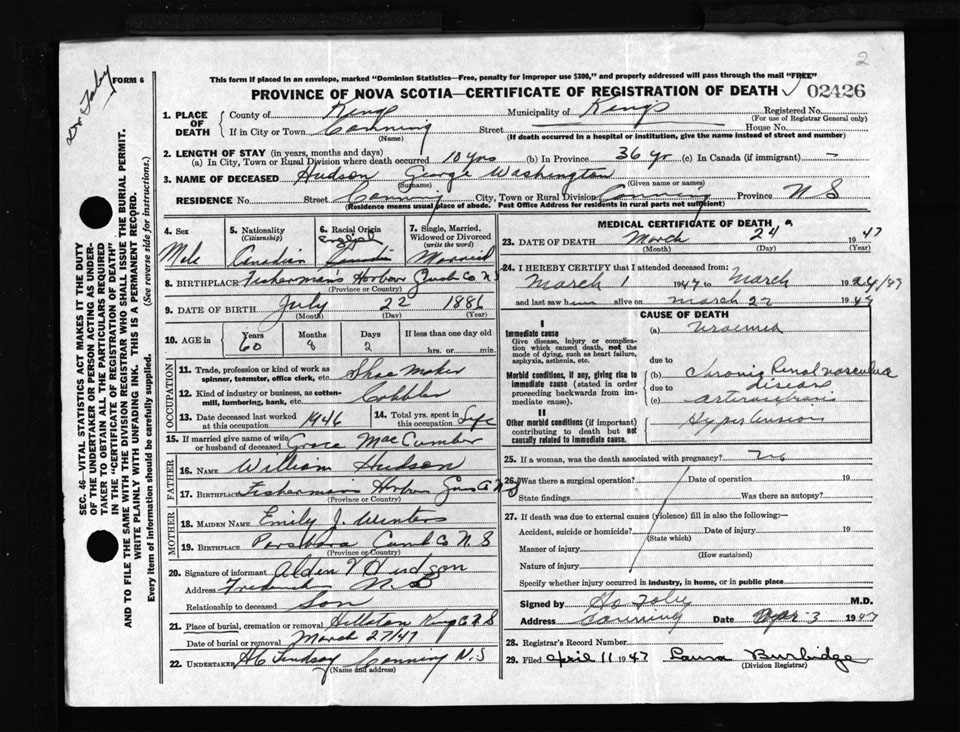 2
Dr. Foley
FORM 6
This form if placed in an envelope, marked "Dominion Statistics—Free, penalty for improper use $300," and properly addressed will pass through the mail "FREE"
PROVINCE OF NOVA SCOTIA—CERTIFICATE OF REGISTRATION OF DEATH 02426
SEC. 46—VITAL STATISTICS ACT MAKES IT THE DUTY
OF THE UNDERTAKER OR PERSON ACTING AS UNDER-
TAKER TO OBTAIN ALL THE PARTICULARS REQUIRED
IN THE "CERTIFICATE OF REGISTRATION OF DEATH"
AND TO FILE THE SAME WITH THE DIVISION REGISTRAR WHO SHALL ISSUE THE BURIAL PERMIT.
WRITE PLAINLY WITH UNFADING INK. THIS IS A PERMANENT RECORD.
Every item of information should be carefully supplied. (See reverse side for instructions.)
1. PLACE OF DEATH
County of Kings Municipality of Kings Registered No.
(For use of Registrar General only)
If in City or Town Canning Street House No.
(Name) (If death occurred in a hospital or institution, give the name instead of street and number)
2. LENGTH OF STAY (in years, months and days)
(a) In City, Town or Rural Division where death occurred 10 yrs (b) In Province 36 yr (c) In Canada (if immigrant) —
3. NAME OF DECEASED Hudson George Washington
(Surname) (Given name or names)
RESIDENCE No. Street Canning City, Town or Rural Division Canning Province N S
(Residence means usual place of abode. Post Office Address for residents in rural parts not sufficient)
4. Sex Male
5. Nationality (Citizenship) Canadian
6. Racial Origin English Canadian
7. Single, Married, Widowed or Divorced (write the word) Married
8. BIRTHPLACE Fisherman's Harbor Guys Co N S
(Province or Country)
9. DATE OF BIRTH July 22 1886
(Month) (Day) (Year)
10. AGE in Years 60 Months 8 Days 2 If less than one day old hrs. or min.
OCCUPATION
11. Trade, profession or kind of work as spinner, teamster, office clerk, etc. Shoe Maker
12. Kind of industry or business, as cotton-mill, lumbering, bank, etc. Cobbler
13. Date deceased last worked at this occupation 1946
14. Total yrs. spent in this occupation Life
15. If married give name of wife or husband of deceased Grace MacCumber
FATHER
16. NAME William Hudson
17. BIRTHPLACE Fisherman's Harbor Guys Co N S
(Province or Country)
MOTHER
18. MAIDEN NAME Emily J. Winters
19. BIRTHPLACE Parrsboro Cumb Co N. S
(Province or Country)
20. Signature of informant Alden V Hudson
Address N. S
Relationship to deceased Son
21. Place of burial, cremation or removal Hillaton Kings Co N S
Date of burial or removal March 27/47
22. UNDERTAKER Lindsay Canning N. S
(Name and address)
MEDICAL CERTIFICATE OF DEATH
23. DATE OF DEATH March 24 1947
(Month) (Day) (Year)
24. I HEREBY CERTIFY that I attended deceased from:
March 1 1947 to March 24/47
and last saw him alive on March 22 1947
CAUSE OF DEATH
I
Immediate cause
Give disease, injury or complication which caused death, not the mode of dying, such as heart failure, asphyxia, asthenia, etc.
(a) Uraemia
due to
Morbid conditions, if any, giving rise to immediate cause (stated in order proceeding backwards from immediate cause).
(b) Chronic Renal vascular disease
due to
(c)
II
Other morbid conditions (if important) contributing to death but not causally related to immediate cause.
Hypertension
25. If a woman, was the death associated with pregnancy? no
26. Was there a surgical operation? Date of operation 19
State findings Was there an autopsy?
27. If death was due to external causes (violence) fill in also the following:—
Accident, suicide or homicide? Date of injury 19
(State which)
Manner of injury
(How sustained)
Nature of injury
Specify whether injury occurred in industry, in home, or in public place
Signed by M.D.
Address Canning Date Apr 3 1947
28. Registrar's Record Number
29. Filed April 11 1947 Laura Burbidge
(Division Registrar)